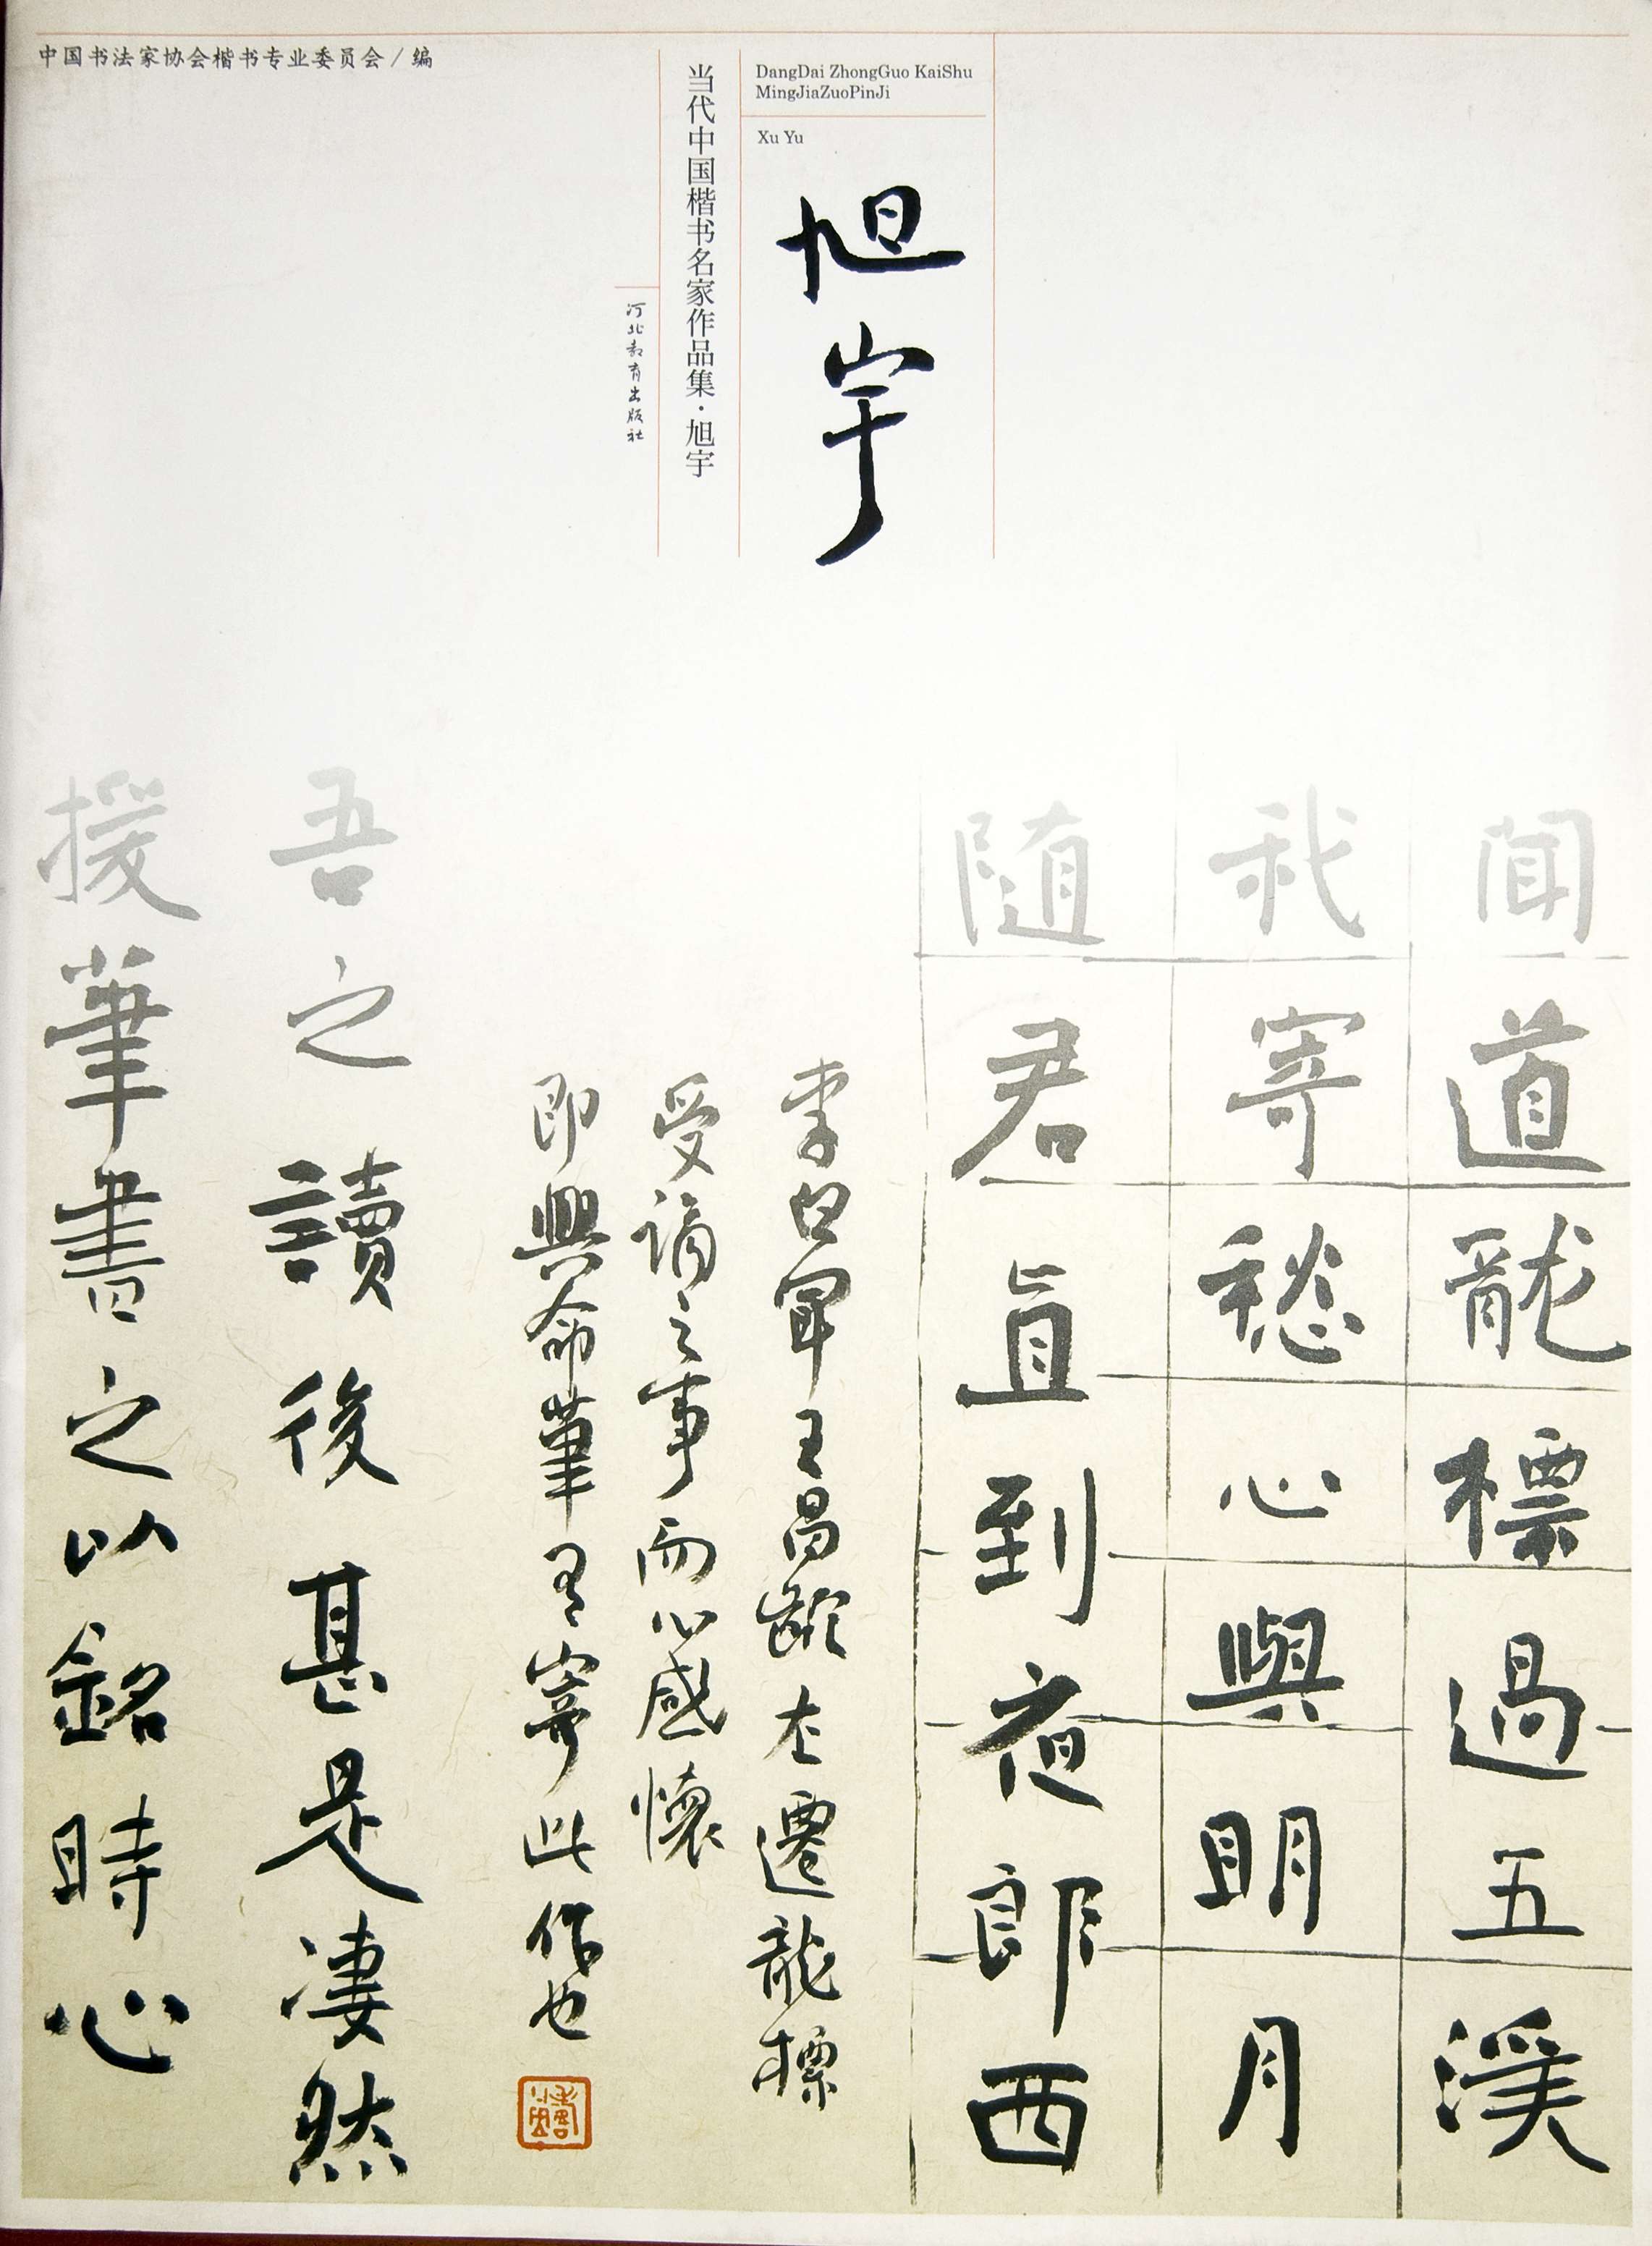 中国书法家协会楷书专业委员会／编
DangDai ZhongGuo KaiShu
MingJiaZuoPinJi
Xu Yu
旭宇
当代中国楷书名家作品集·旭宇
河北教育出版社
闻道龍標過五溪
我寄愁心與明月
随君直到夜郎西
李白闻王昌齡左遷龍標
受谪之事而心感懷
即興命筆有寄此作也
吾之讀後甚是凄然
援筆書之以銘時心